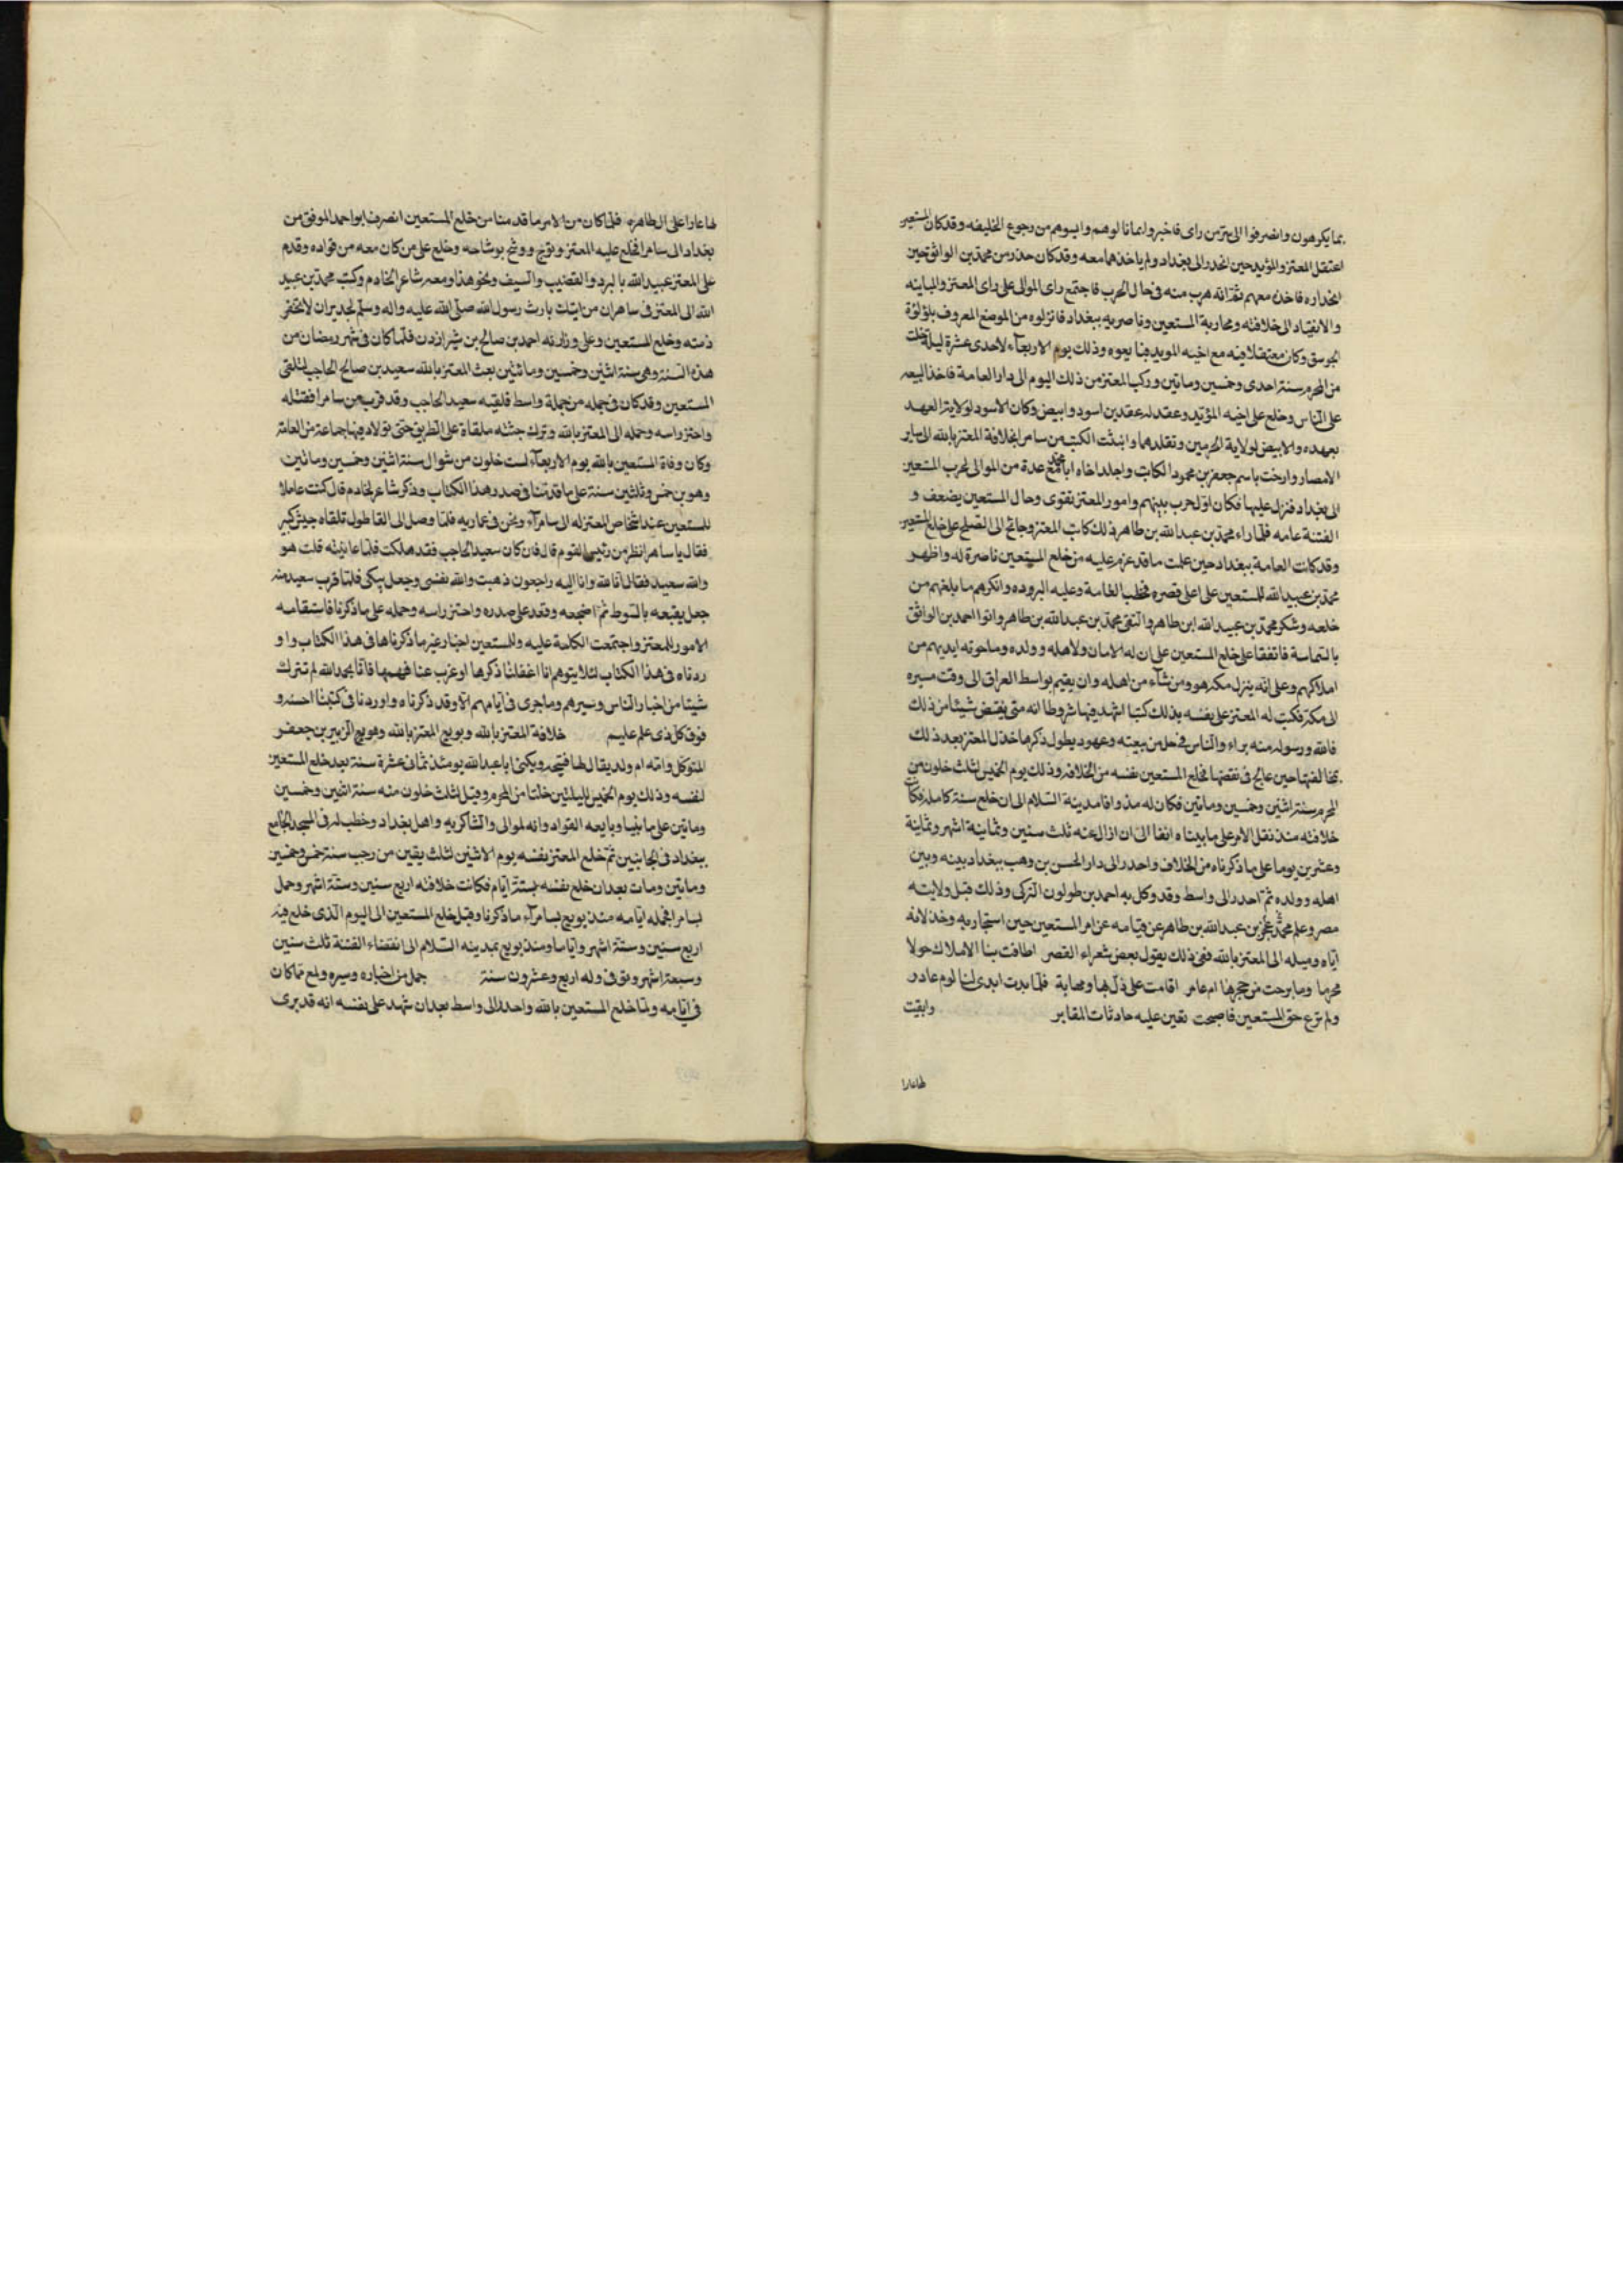 بما يكرهون وانصرفوا الى سرمن راى فاخبروا بما نالوهم وايسوهم من رجوع الخليفه وقد كان المستعين
اعتقل المعتز والمؤيد حين انحدر الى بغداد ولم ياخذهما معه وقد كان حذر من محمد بن الواثق حين
انحداره فاخذه معهم ثم انه هرب منه فى حال الحرب فاجتمع راى الموالى على راى المعتز والمباينه
والانقياد الى خلافته ومحاربة المستعين وناصريه ببغداد فانزلوه من الموضع المعروف بلؤلؤة
الجوسق وكان معتقلا فيه مع اخيه المويد فبايعوه وذلك يوم الاربعآء لاحدى عشرة ليلة خلت
من المحرم سنة احدى وخمسين وماتين وركب المعتز من ذلك اليوم الى دار العامة فاخذ البيعه
على الناس وخلع على اخيه المؤيد وعقد له عقدين اسود وابيض وكان الاسود لولاية العهد
بعهده والابيض لولاية الحرمين وتقلدهما وانبثت الكتب من سامرا بخلافة المعتز بالله الى ساير
الامصار وارخت باسم جعفر بن محمود الكاتب واحدر اخاه ابا احمد مع عدة من الموالى لحرب المستعين
الى بغداد فنزل عليها فكان اول حرب بينهم وامور المعتز تقوى وحال المستعين يضعف و
الفتنة عامه فلما راء محمد بن عبد الله بن طاهر ذلك كاتب المعتز وجانح الى الصلح على خلع المستعين
وقد كانت العامة ببغداد حين علمت ما قد عزم عليه من خلع المستعين ناصرة له واظهر
محمد بن عبيد الله المستعين على اعلى قصره فخطب العامة وعليه البروده وانكرهم ما بلغهم من
خلعه وشكر محمد بن عبيد الله ابن طاهر والتقى محمد بن عبد الله بن طاهر وابوا احمد بن الواثق
بالشماسة فاتفقا على خلع المستعين على ان له الامان ولاهله وولده وما حوته ايديهم من
املاكهم وعلى انه ينزل مكه هو ومن شآء من اهله وان يقيم بواسط العراق الى وقت مسيره
الى مكة فكتب له المعتز على نفسه بذلك كتبا اشهد فيها شروطا انه متى نقض شيئا من ذلك
فالله ورسوله منه براء والناس فى حل من بيعته وعهود يطول ذكرها خذل المعتز بعد ذلك
بمخالفتها حين عالج فى نقضها فخلع المستعين نفسه من الخلافه وذلك يوم الخميس لثلث خلون من
المحرم سنة اثنين وخمسين وماتين فكان له مذ وافا مدينة السلام الى ان خلع سنة كامله فكانت
خلافته منذ نقل الامر على ما بيناه انفا الى ان ازال عنه ثلث سنين وثمانية اشهر وثمانية
وعشرين يوما على ما ذكرناه من الخلاف واحدر الى دار الحسن بن وهب ببغداد بينه وبين
اهله وولده ثم احدر الى واسط وقد وكل به احمد بن طولون التركى وذلك قبل ولايته
مصر وعلم محمد عجز بن عبد الله بن طاهر عن قيامه عن امر المستعين حين استجار به وخذلانه
اياه وميله الى المعتز بالله ففى ذلك يقول بعض شعراء القصر اطافت بنا الاملاك حولا
محرما وما برحت من حجرها ام عامر اقامت على ذل بها ومهابة فلما بدت ابدى لنا لوم غادر
ولم ترع حق المستعين فاصبحت تعين عليه حادثات المقابر وابقيت
لها عارا
لها عارا على ال طاهره فلما كان من الامر ما قدمنا من خلع المستعين انصرف ابو احمد الموفق من
بغداد الى سامرا فخلع عليه المعتز وتوج ووشح بوشاحه وخلع على من كان معه من قواده وقدم
على المعتز عبيد الله بالبرد والقضيب والسيف ونحو هذا ومعه شاعر الخادم وكتب محمد بن عبيد
الله الى المعتز فى ساهر ان من اتاك بارث رسول الله صلى الله عليه واله وسلم لجدير ان لا تخفر
ذمته وخلع المستعين وعلى وزارته احمد بن صالح بن شيرازدن فلما كان فى شهر رمضان من
هذه السنة وهى سنة اثنين وخمسين وماتين بعث المعتز بالله سعيد بن صالح الحاجب لتلقى
المستعين وقد كان فى جمله من حملة واسط فلقيه سعيد الحاجب وقد قرب من سامرا فقتله
واحتز راسه وحمله الى المعتز بالله وترك جثته ملقاة على الطريق حتى تولا دفنها جماعة من العامة
وكان وفاة المستعين بالله يوم الاربعآء لست خلون من شوال سنة اثنين وخمسين وماتين
وهو بن خمس وثلثين سنة على ما قدمنا فى صدر هذا الكتاب وذكر شاعر الخادم قال كنت عاملا
للمستعين عند اشخاص المعتز له الى سامرآء ونحن فى عماريه فلما وصل الى القاطول تلقاه جيش كبير
فقال يا ساهر انظر من رئيس القوم قال فان كان سعيد الحاجب فقد هلكت فلما عاينته قلت هو
والله سعيد فقال انا لله وانا اليه راجعون ذهبت والله نفسى وجعل يبكى فلما قرب سعيد منه
جعل يقنعه بالسوط ثم اضجعه وقعد على صدره واحتز راسه وحمله على ما ذكرنا فاستقامه
الامور للمعتز واجتمعت الكلمة عليه وللمستعين اخبار غير ما ذكرناها فى هذا الكتاب واو
ردناه فى هذا الكتاب لئلا يتوهم انا اغفلنا ذكرها او عزب عنا فهمها فانا بحمد الله لم نترك
شيئا من اخبار الناس وسيرهم وما جرى فى ايامهم الا وقد ذكرناه واوردنا فى كتبنا احسنه و
فوق كل ذى علم عليم خلافة المعتز بالله وبويع المعتز بالله وهو الزبير بن جعفر
المتوكل وامه ام ولد يقال لها فتيحه ويكنى ابا عبد الله يومئذ ثمانى عشرة سنة بعد خلع المستعين
لنفسه وذلك يوم الخميس لليلتين خلتا من المحرم وقيل لثلث خلون منه سنة اثنين وخمسين
وماتين على ما بينا وبايعه القواد وانه لموالى والشاكريه واهل بغداد وخطب له فى المسجد الجامع
ببغداد فى الجانبين ثم خلع المعتز نفسه يوم الاثنين لثلث بقين من رجب سنة خمس وخمسين
وماتين ومات بعد ان خلع نفسه بستة ايام فكانت خلافته اربع سنين وستة اشهر وحمل
بسامرا فجمله ايامه منذ بويع بسامرآء ما ذكرنا وقبل خلع المستعين الى اليوم الذى خلع فيه
اربع سنين وستة اشهر واياما ومنذ بويع بمدينه السلام الى انقضاء الفتنة ثلث سنين
وسبعة اشهر وتوفى وله اربع وعشرون سنة جمل من اخباره وسيره ولمع مما كان
فى ايامه ولما خلع المستعين بالله واحدر الى واسط بعد ان شهد على نفسه انه قد برى